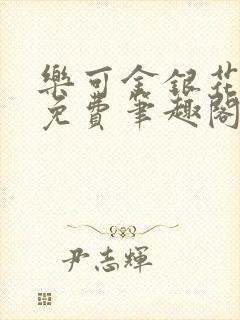 樂可金銀花
免費筆趣閣
尹志輝